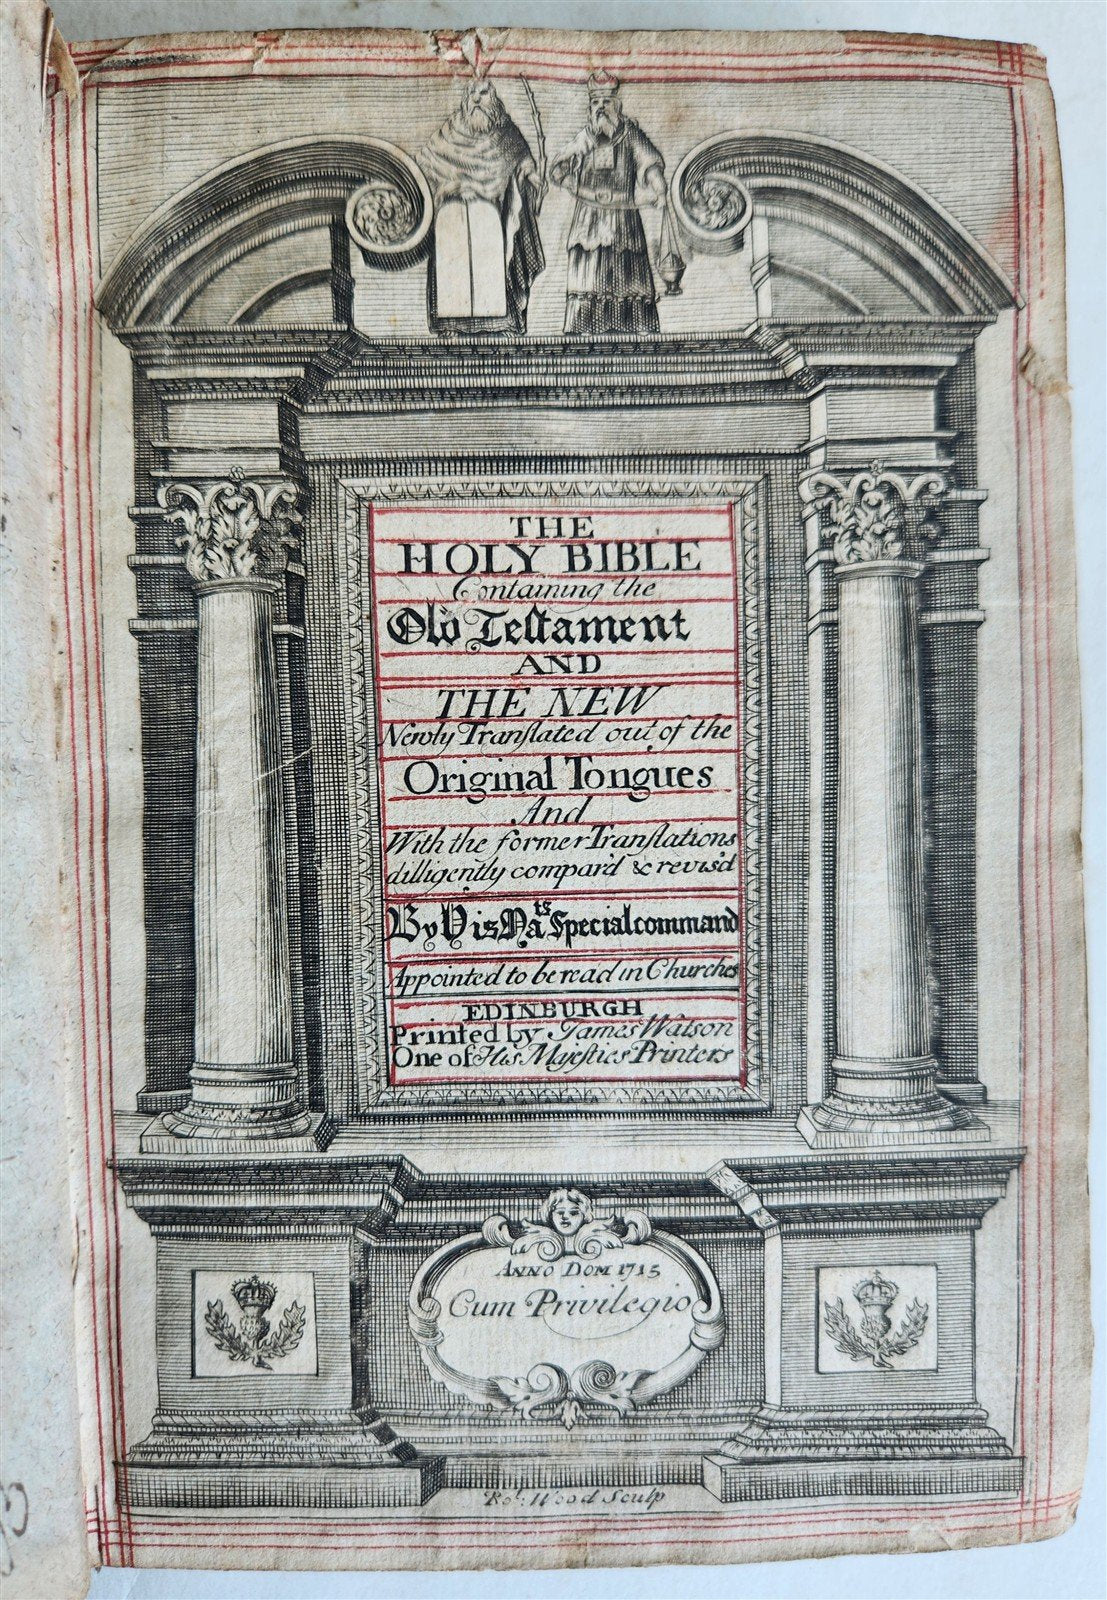 THE
HOLY BIBLE
Containing the
Old Teſtament
AND
THE NEW
Newly Tranſlated out of the
Original Tongues
And
With the former Tranſlations
dilligently compar'd & revis'd
By His Ma.ts Special command
Appointed to be read in Churches
EDINBURGH
Printed by James Watson
One of His Majeſties Printers
ANNO DOM 1715
Cum Privilegio
Ro.t Wood Sculp